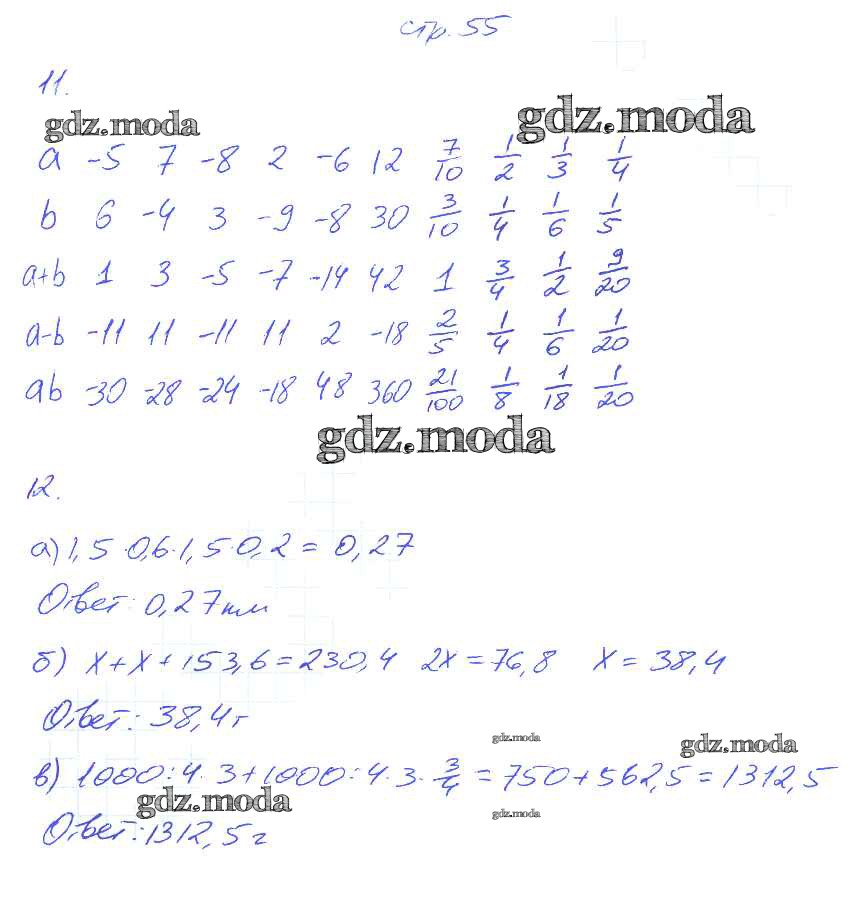 стр. 55
11.
gdz.moda gdz.moda
a -5 7 -8 2 -6 12 7/10 1/2 1/3 1/4
b 6 -4 3 -9 -8 30 3/10 1/4 1/6 1/5
a+b 1 3 -5 -7 -14 42 1 3/4 1/2 9/20
a-b -11 11 -11 11 2 -18 2/5 1/4 1/6 1/20
ab -30 -28 -24 -18 48 360 21/100 1/8 1/18 1/20
gdz.moda
12.
а) 1,5·0,6·1,5·0,2 = 0,27
Ответ: 0,27 км
б) x+x+153,6=230,4 2x=76,8 x=38,4
Ответ: 38,4 г
gdz.moda gdz.moda
в) 1000:4·3+1000:4·3·3/4=750+562,5=1312,5
gdz.moda gdz.moda
Ответ: 1312,5 г